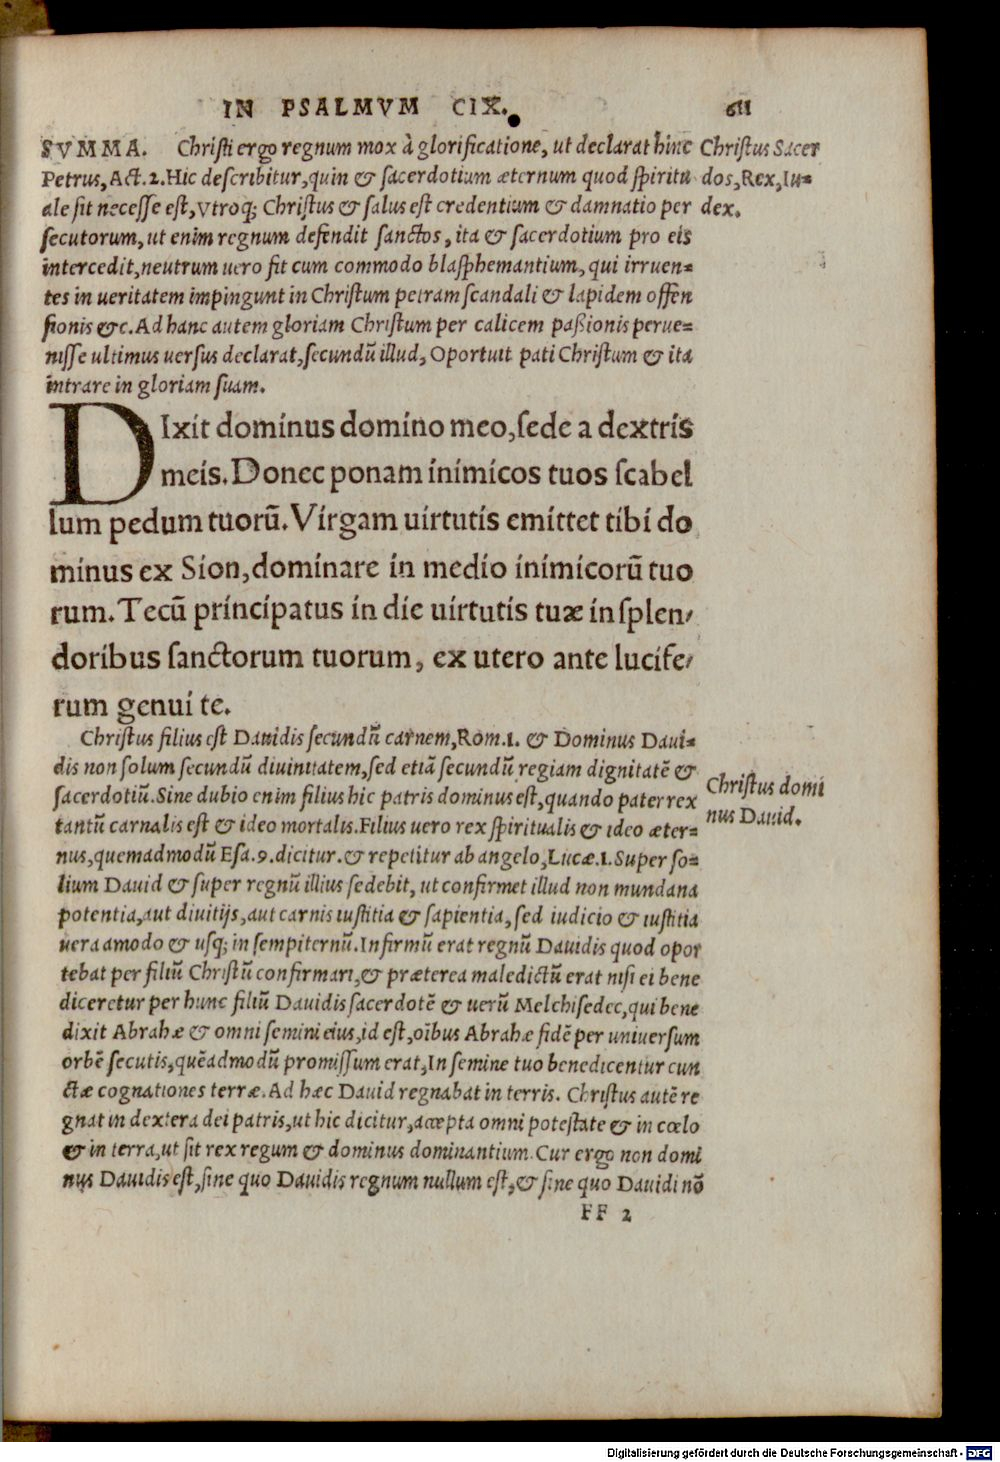 IN PSALMVM CIX. 611
SVMMA. Chriſti ergo regnum mox à glorificatione, ut declarat hinc
Petrus, Act. 2. Hic deſcribitur, quin & ſacerdotium æternum quod ſpiritu
ale ſit neceſſe eſt, Vtroq; Chriſtus & ſalus eſt credentium & damnatio per
ſecutorum, ut enim regnum defendit ſanctos, ita & ſacerdotium pro eis
intercedit, neutrum uero fit cum commodo blaſphemantium, qui irruen-
tes in ueritatem impingunt in Chriſtum petram ſcandali & lapidem offen
ſionis &c. Ad hanc autem gloriam Chriſtum per calicem paßionis perue-
niſſe ultimus uerſus declarat, ſecundū illud, Oportuit pati Chriſtum & ita
intrare in gloriam ſuam.
Chriſtus Sacer
dos, Rex, Iu-
dex.
DIxit dominus domino meo, ſede a dextris
meis. Donec ponam inimicos tuos ſcabel
lum pedum tuorū. Virgam uirtutis emittet tibi do
minus ex Sion, dominare in medio inimicorū tuo
rum. Tecū principatus in die uirtutis tuæ in ſplen-
doribus ſanctorum tuorum, ex utero ante lucife-
rum genui te.
Chriſtus filius eſt Dauidis ſecundū carnem, Rom. 1. & Dominus Daui-
dis non ſolum ſecundū diuinitatem, ſed etiā ſecundū regiam dignitatē &
ſacerdotiū. Sine dubio enim filius hic patris dominus eſt, quando pater rex
tantū carnalis eſt & ideo mortalis. Filius uero rex ſpiritualis & ideo æter-
nus, quemadmodū Eſa. 9. dicitur. & repetitur ab angelo, Lucæ. 1. Super ſo-
lium Dauid & ſuper regnū illius ſedebit, ut confirmet illud non mundana
potentia, aut diuitijs, aut carnis iuſtitia & ſapientia, ſed iudicio & iuſtitia
uera amodo & uſq; in ſempiternū. Infirmū erat regnū Dauidis quod opor
tebat per filiū Chriſtū confirmari, & præterea maledictū erat niſi ei bene
diceretur per hunc filiū Dauidis ſacerdotē & uerū Melchiſedec, qui bene
dixit Abrahæ & omni ſemini eius, id eſt, oībus Abrahæ fidē per uniuerſum
orbē ſecutis, quēadmodū promiſſum erat, In ſemine tuo benedicentur cun
ctæ cognationes terræ. Ad hæc Dauid regnabat in terris. Chriſtus autē re
gnat in dextera dei patris, ut hic dicitur, accepta omni poteſtate & in cœlo
& in terra, ut ſit rex regum & dominus dominantium. Cur ergo non domi
nus Dauidis eſt, ſine quo Dauidis regnum nullum eſt, & ſine quo Dauidi nō
Chriſtus domi
nus Dauid.
FF 2
Digitalisierung gefördert durch die Deutsche Forschungsgemeinschaft - DFG